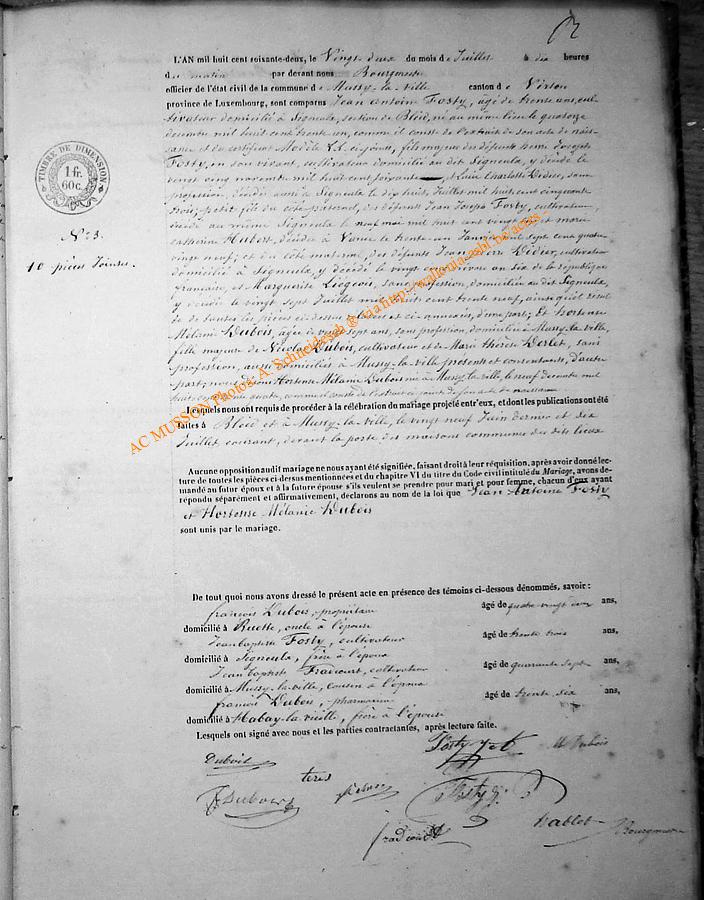 L'AN mil huit cent soixante-deux, le Vingt deux du mois de Juillet à dix heures
du matin par devant nous Bourgmestre
officier de l'état civil de la commune de Mussy-la-ville canton de Virton
province de Luxembourg, sont comparus Jean Antoine Fosty, âgé de trente ans, cul-
tivateur domicilié à Signeulx, section de Bléid, né au même lieu le quatorze
décembre mil huit cent trente un, comme il conste de l'extrait de son acte de nais-
sance et du certificat Modèle LL ci-joints, fils majeur des défunts Henri Joseph
Fosty, en son vivant, cultivateur domicilié au dit Signeulx, y décédé le
vingt cinq novembre mil huit cent soixante, et Marie Charlotte Didier, sans
profession, décédée aussi à Signeulx le dix huit Juillet mil huit cent cinquante
trois; petit fils du côté paternel, des défunts Jean Joseph Fosty, cultivateur,
décédé au même Signeulx le neuf mai mil huit cent vingt et Marie
Catherine Hubert, décédée à le trente un Janvier mil sept cent quatre
vingt neuf; et du côté maternel, des défunts Jean Pierre Didier, cultivateur
domicilié à Signeulx, y décédé le vingt nivose an six de la république
française, et Marguerite Liégeois, sans profession, domiciliée au dit Signeulx,
y décédée le vingt sept Juillet mil huit cent trente neuf, ainsi qu'il résulte
de toutes les pièces ci-dessus relatées et ci-annexées, d'une part; Et Hortense
Mélanie Dubois, âgée de vingt sept ans, sans profession, domiciliée à Mussy-la-ville,
fille majeure de Nicolas Dubois, cultivateur et de Marie Thérèse Derlet, sans
profession, aussi domiciliés à Mussy-la-ville présents et consentants, d'autre
part; nous disons Hortense Mélanie Dubois née à Mussy-la-ville, le neuf décembre mil
huit cent trente quatre, comme il conste de l'extrait de son acte de naissance
Lesquels nous ont requis de procéder à la célébration du mariage projeté entr'eux, et dont les publications ont été
faites à Bléid et à Mussy-la-ville, le vingt neuf Juin dernier et six
Juillet courant, devant la porte des maisons communes des dits lieux
Aucune opposition audit mariage ne nous ayant été signifiée, faisant droit à leur réquisition, après avoir donné lec-
ture de toutes les pièces ci-dessus mentionnées et du chapitre VI du titre du Code civil intitulé du Mariage, avons de-
mandé au futur époux et à la future épouse s'ils veulent se prendre pour mari et pour femme, chacun d'eux ayant
répondu séparément et affirmativement, déclarons au nom de la loi que Jean Antoine Fosty
et Hortense Mélanie Dubois
sont unis par le mariage.
De tout quoi nous avons dressé le présent acte en présence des témoins ci-dessous dénommés, savoir :
françois Dubois, propriétaire âgé de quatre vingt deux ans,
domicilié à Ruette, oncle à l'épouse
Jean baptiste Fosty, cultivateur âgé de trente trois ans,
domicilié à Signeulx, frère à l'époux
Jean baptiste Fraicourt, cultivateur âgé de quarante sept ans,
domicilié à Mussy-la-ville, cousin à l'époux
françois Dubois, pharmacien âgé de trente six ans,
domicilié à Habay-la-vieille, frère à l'épouse
Lesquels ont signé avec nous et les parties contractantes, après lecture faite.
Dubois Fosty J A H Dubois
F Dubois Fosty
Bourgmestre
TIMBRE DE DIMENSION
1 fr.
60 c.
N° 3.
10 pièces Jointes.
AC MUSSON Photos A. Schneider asbl @ via http://wallonia-asbl.be/actes :